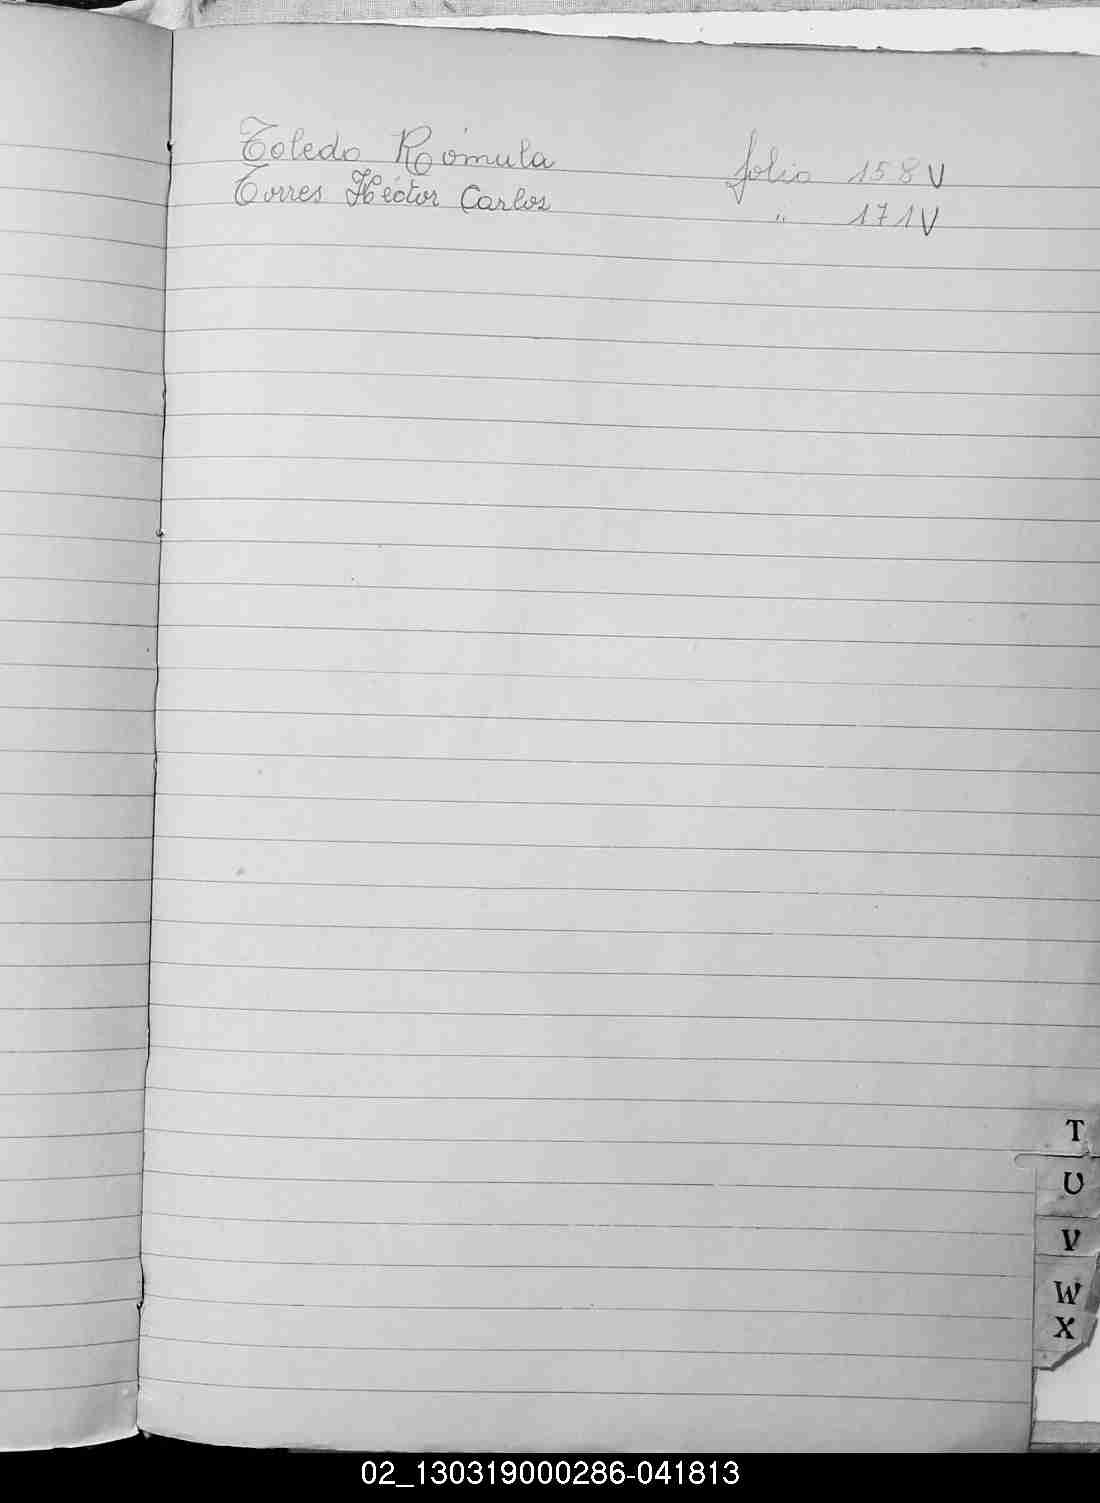 Toledo Rómula folio 158 V
Torres Héctor Carlos " 171 V
T
U
V
W
X
02_130319000286-041813